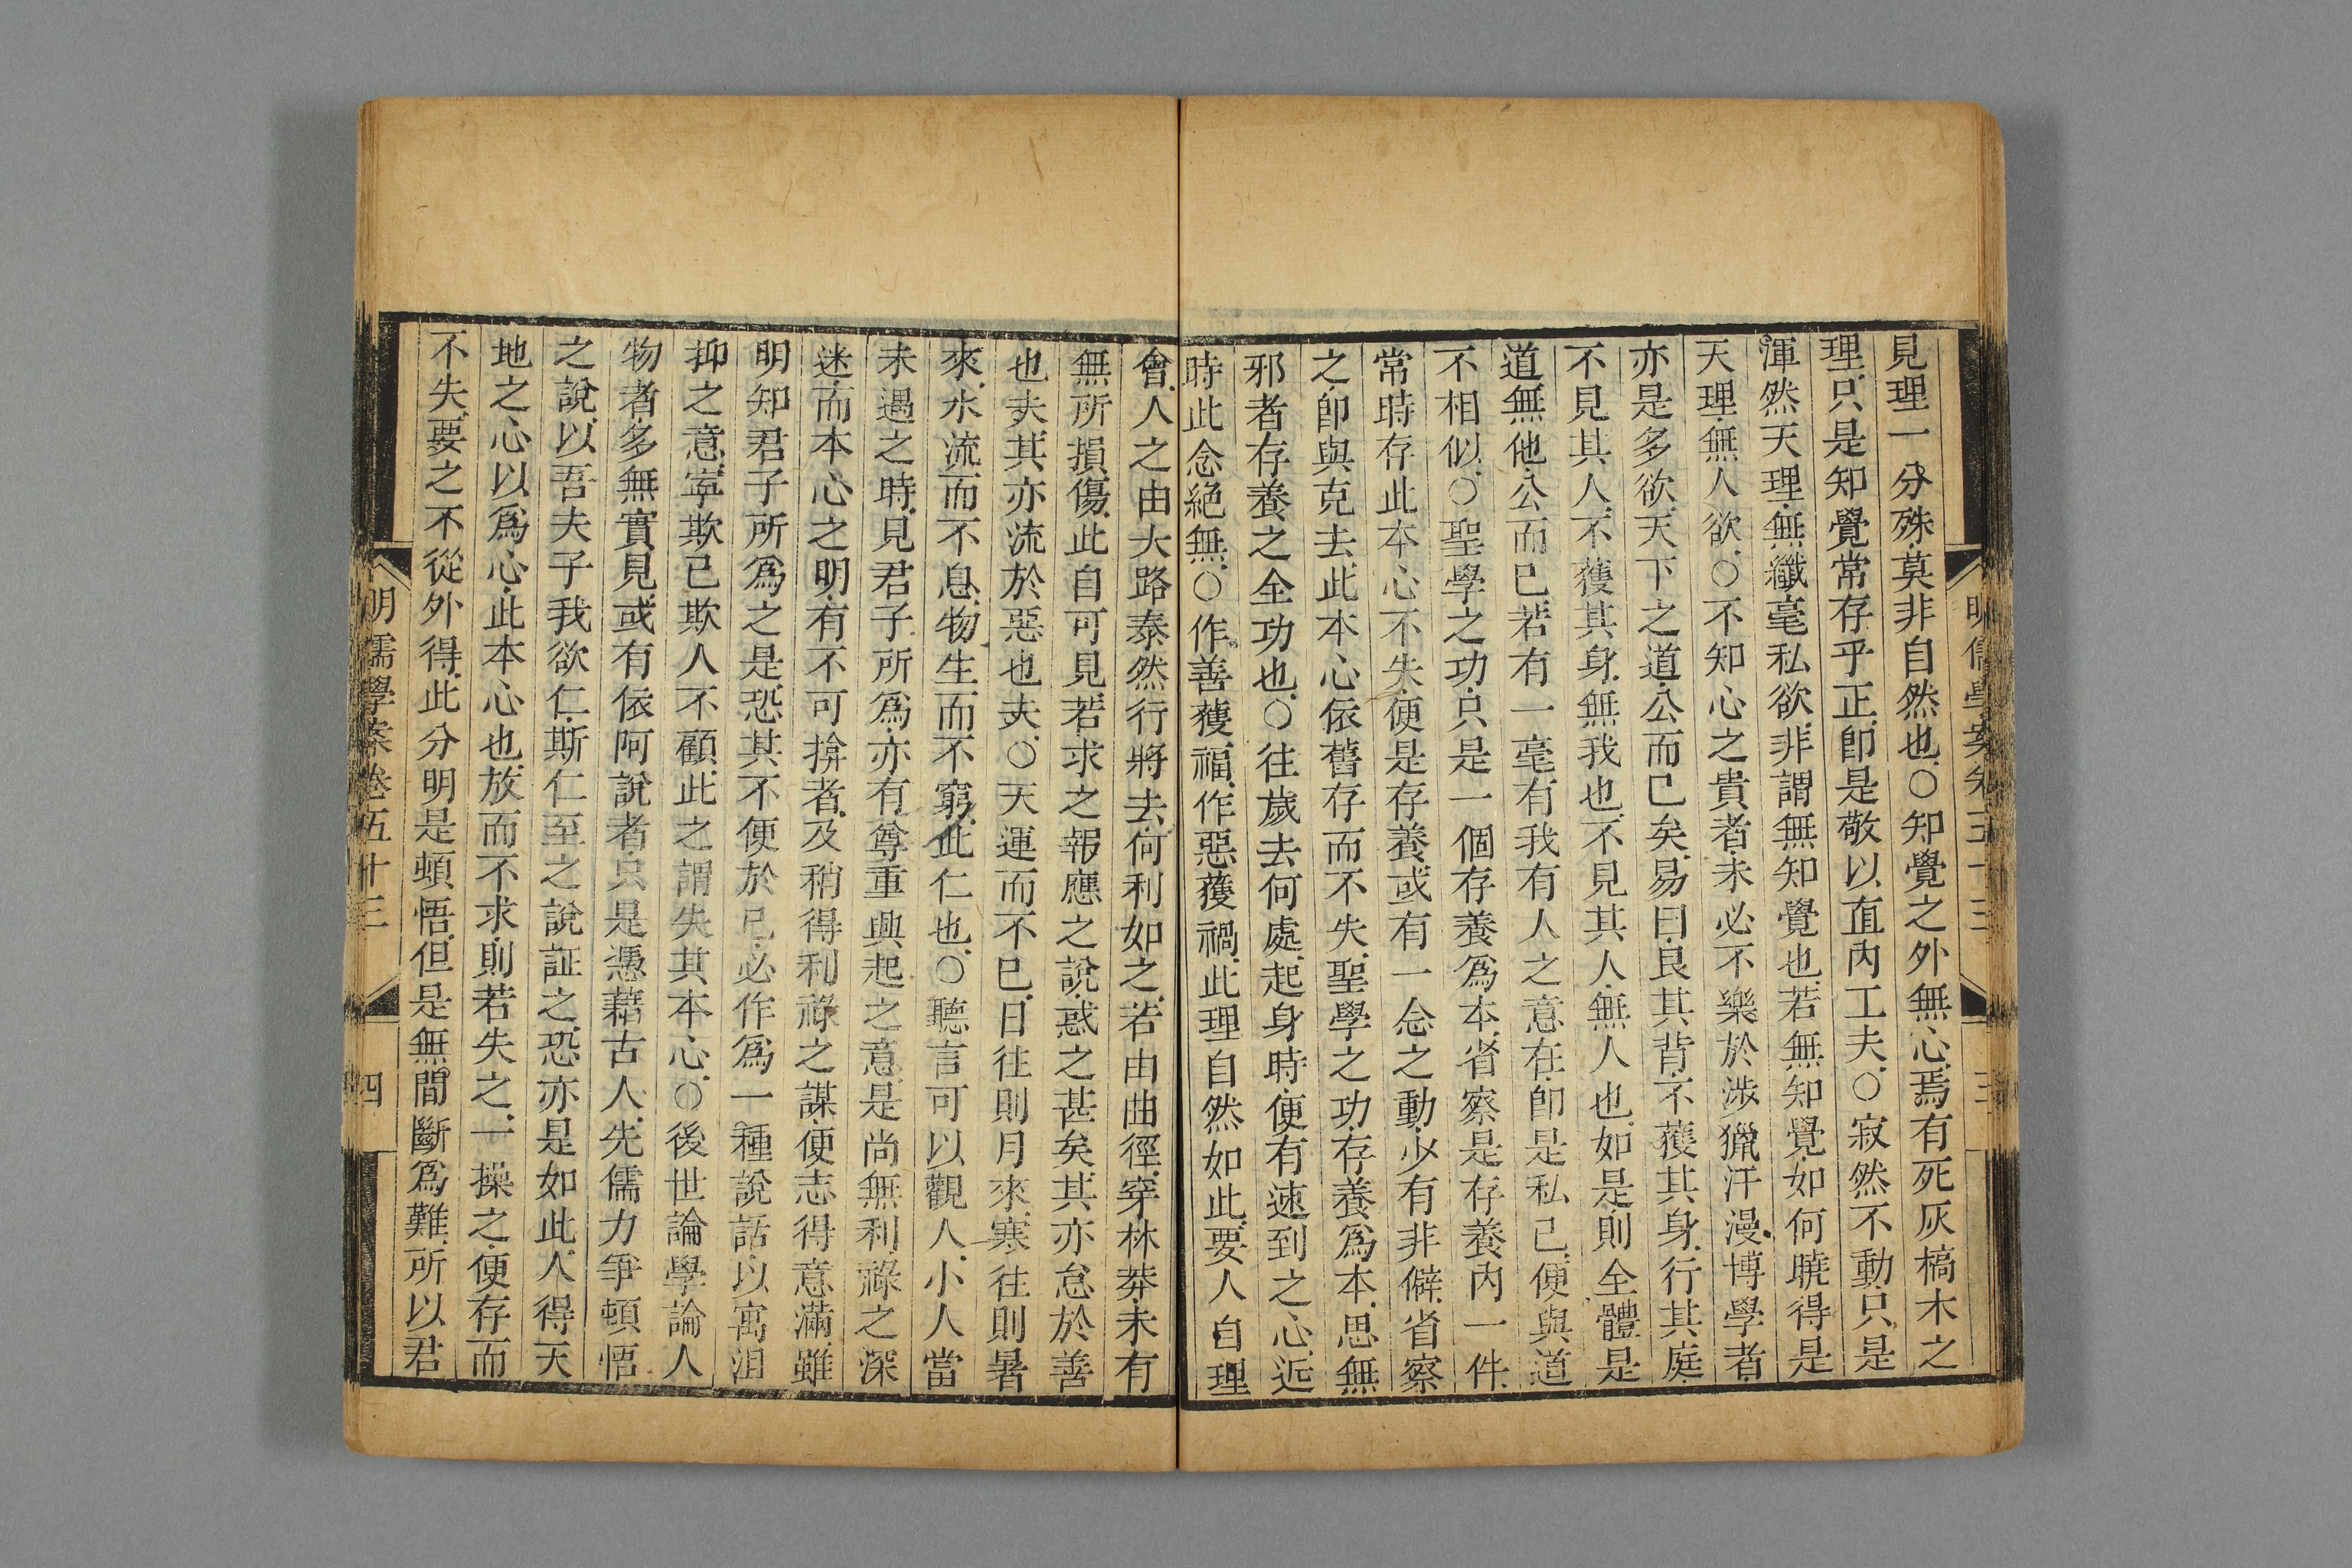 見理一分殊莫非自然也○知覺之外無心焉有死灰槁木之
理只是知覺常存乎正卽是敬以直內工夫○寂然不動只是
渾然天理無纖毫私欲非謂無知覺也若無知覺如何曉得是
天理無人欲○不知心之貴者未必不樂於涉獵汗漫博學者
亦是多欲天下之道公而已矣易曰艮其背不獲其身行其庭
不見其人不獲其身無我也不見其人無人也如是則全體是
道無他公而已若有一毫有我有人之意在卽是私已便與道
不相似○聖學之功只是一個存養爲本省察是存養內一件
常時存此本心不失便是存養或有一念之動少有非僻省察
之卽與克去此本心依舊存而不失聖學之功存養爲本思無
邪者存養之全功也○往歲去何處起身時便有速到之心近
時此念絕無○作善獲福作惡獲禍此理自然如此要人自理
會人之由大路泰然行將去何利如之若由曲徑穿林莽未有
無所損傷此自可見若求之報應之說惑之甚矣其亦怠於善
也夫其亦流於惡也夫○天運而不已日往則月來寒往則暑
來水流而不息物生而不窮此仁也○聽言可以觀人小人當
未遇之時見君子所爲亦有尊重興起之意是尚無利祿之深
迷而本心之明有不可揜者及稍得利祿之謀便志得意滿雖
明知君子所爲之是恐其不便於已必作爲一種說話以寓沮
抑之意寧欺已欺人不顧此之謂失其本心○後世論學論人
物者多無實見或有依阿說者只是憑藉古人先儒力爭頓悟
之說以吾夫子我欲仁斯仁至之說証之恐亦是如此人得天
地之心以爲心此本心也放而不求則若失之一操之便存而
不失要之不從外得此分明是頓悟但是無間斷爲難所以君
明儒學案卷五十三
四
明儒學案卷五十三
三